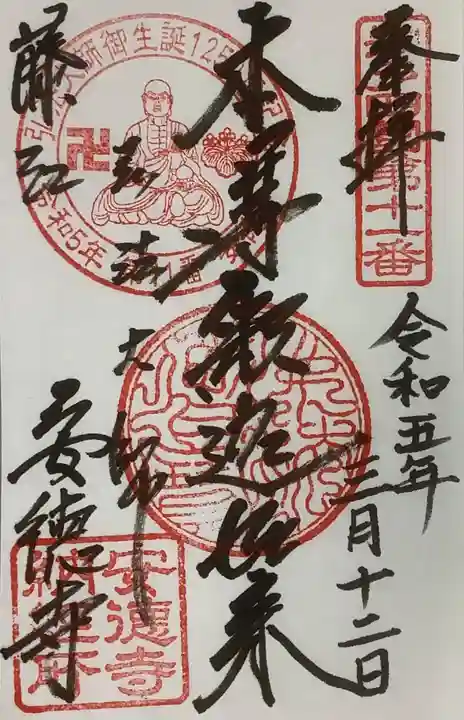 奉拝
第十一番
令和五年
三月十二日
本尊釈迦如来
弘法大師
藤江
安徳寺
弘法大師御生誕125
令和5年
安徳寺
納経所